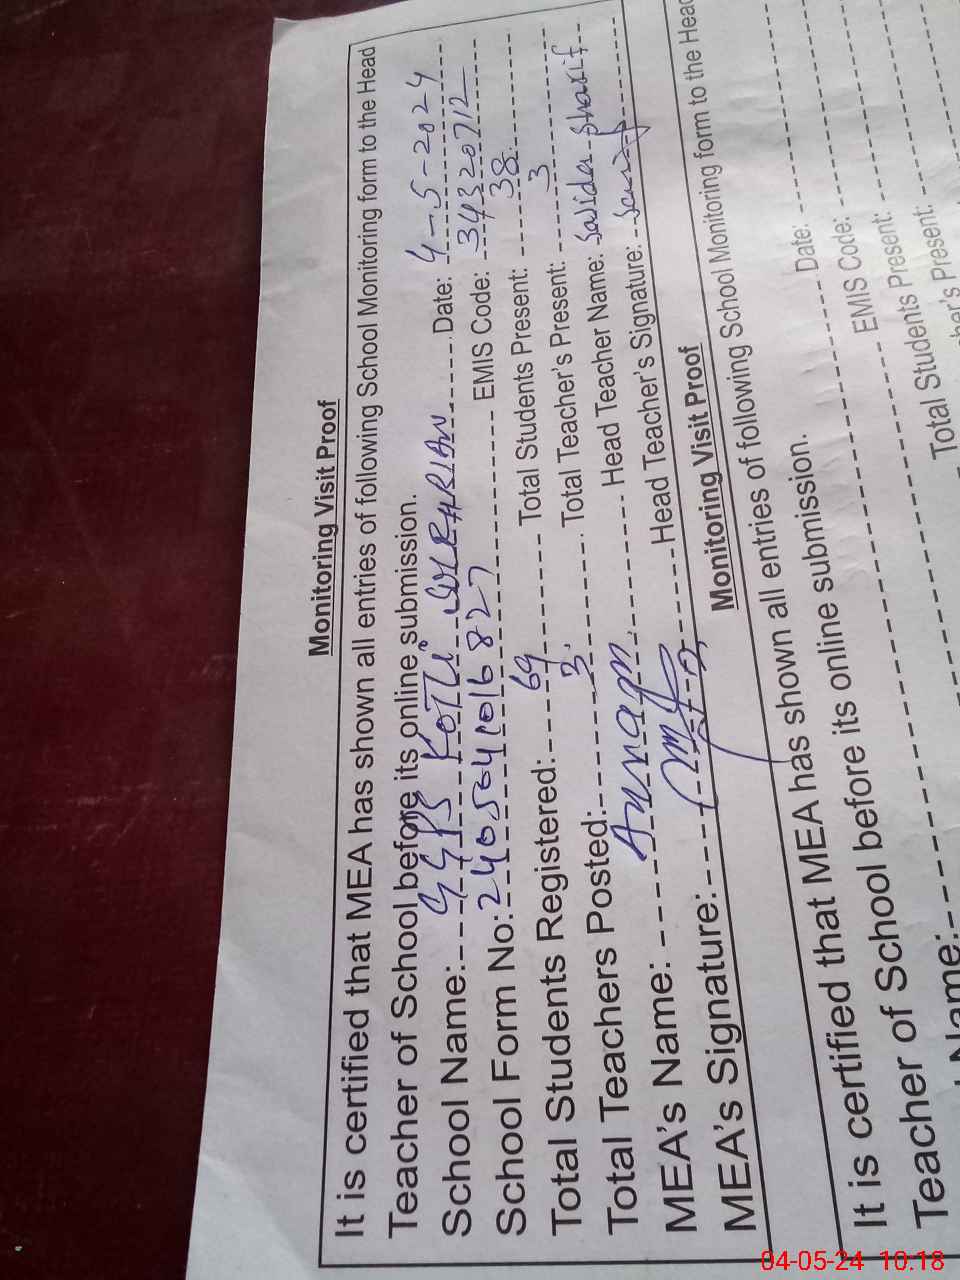 Monitoring Visit Proof
It is certified that MEA has shown all entries of following School Monitoring form to the Head
Teacher of School before its online submission.
School Name: GGPS KOTLI SULEHRIAN Date: 4-5-2024
School Form No: 2405041016827 EMIS Code: 34320712
Total Students Registered: 69 Total Students Present: 38
Total Teachers Posted: 3 Total Teacher's Present: 3
MEA's Name: Anram Head Teacher Name: Sajida Sharif
MEA's Signature: Head Teacher's Signature:
Monitoring Visit Proof
It is certified that MEA has shown all entries of following School Monitoring form to the Head
Teacher of School before its online submission.
Name: Date:
EMIS Code:
Total Students Present:
Teacher's Present:
04-05-24 10:18